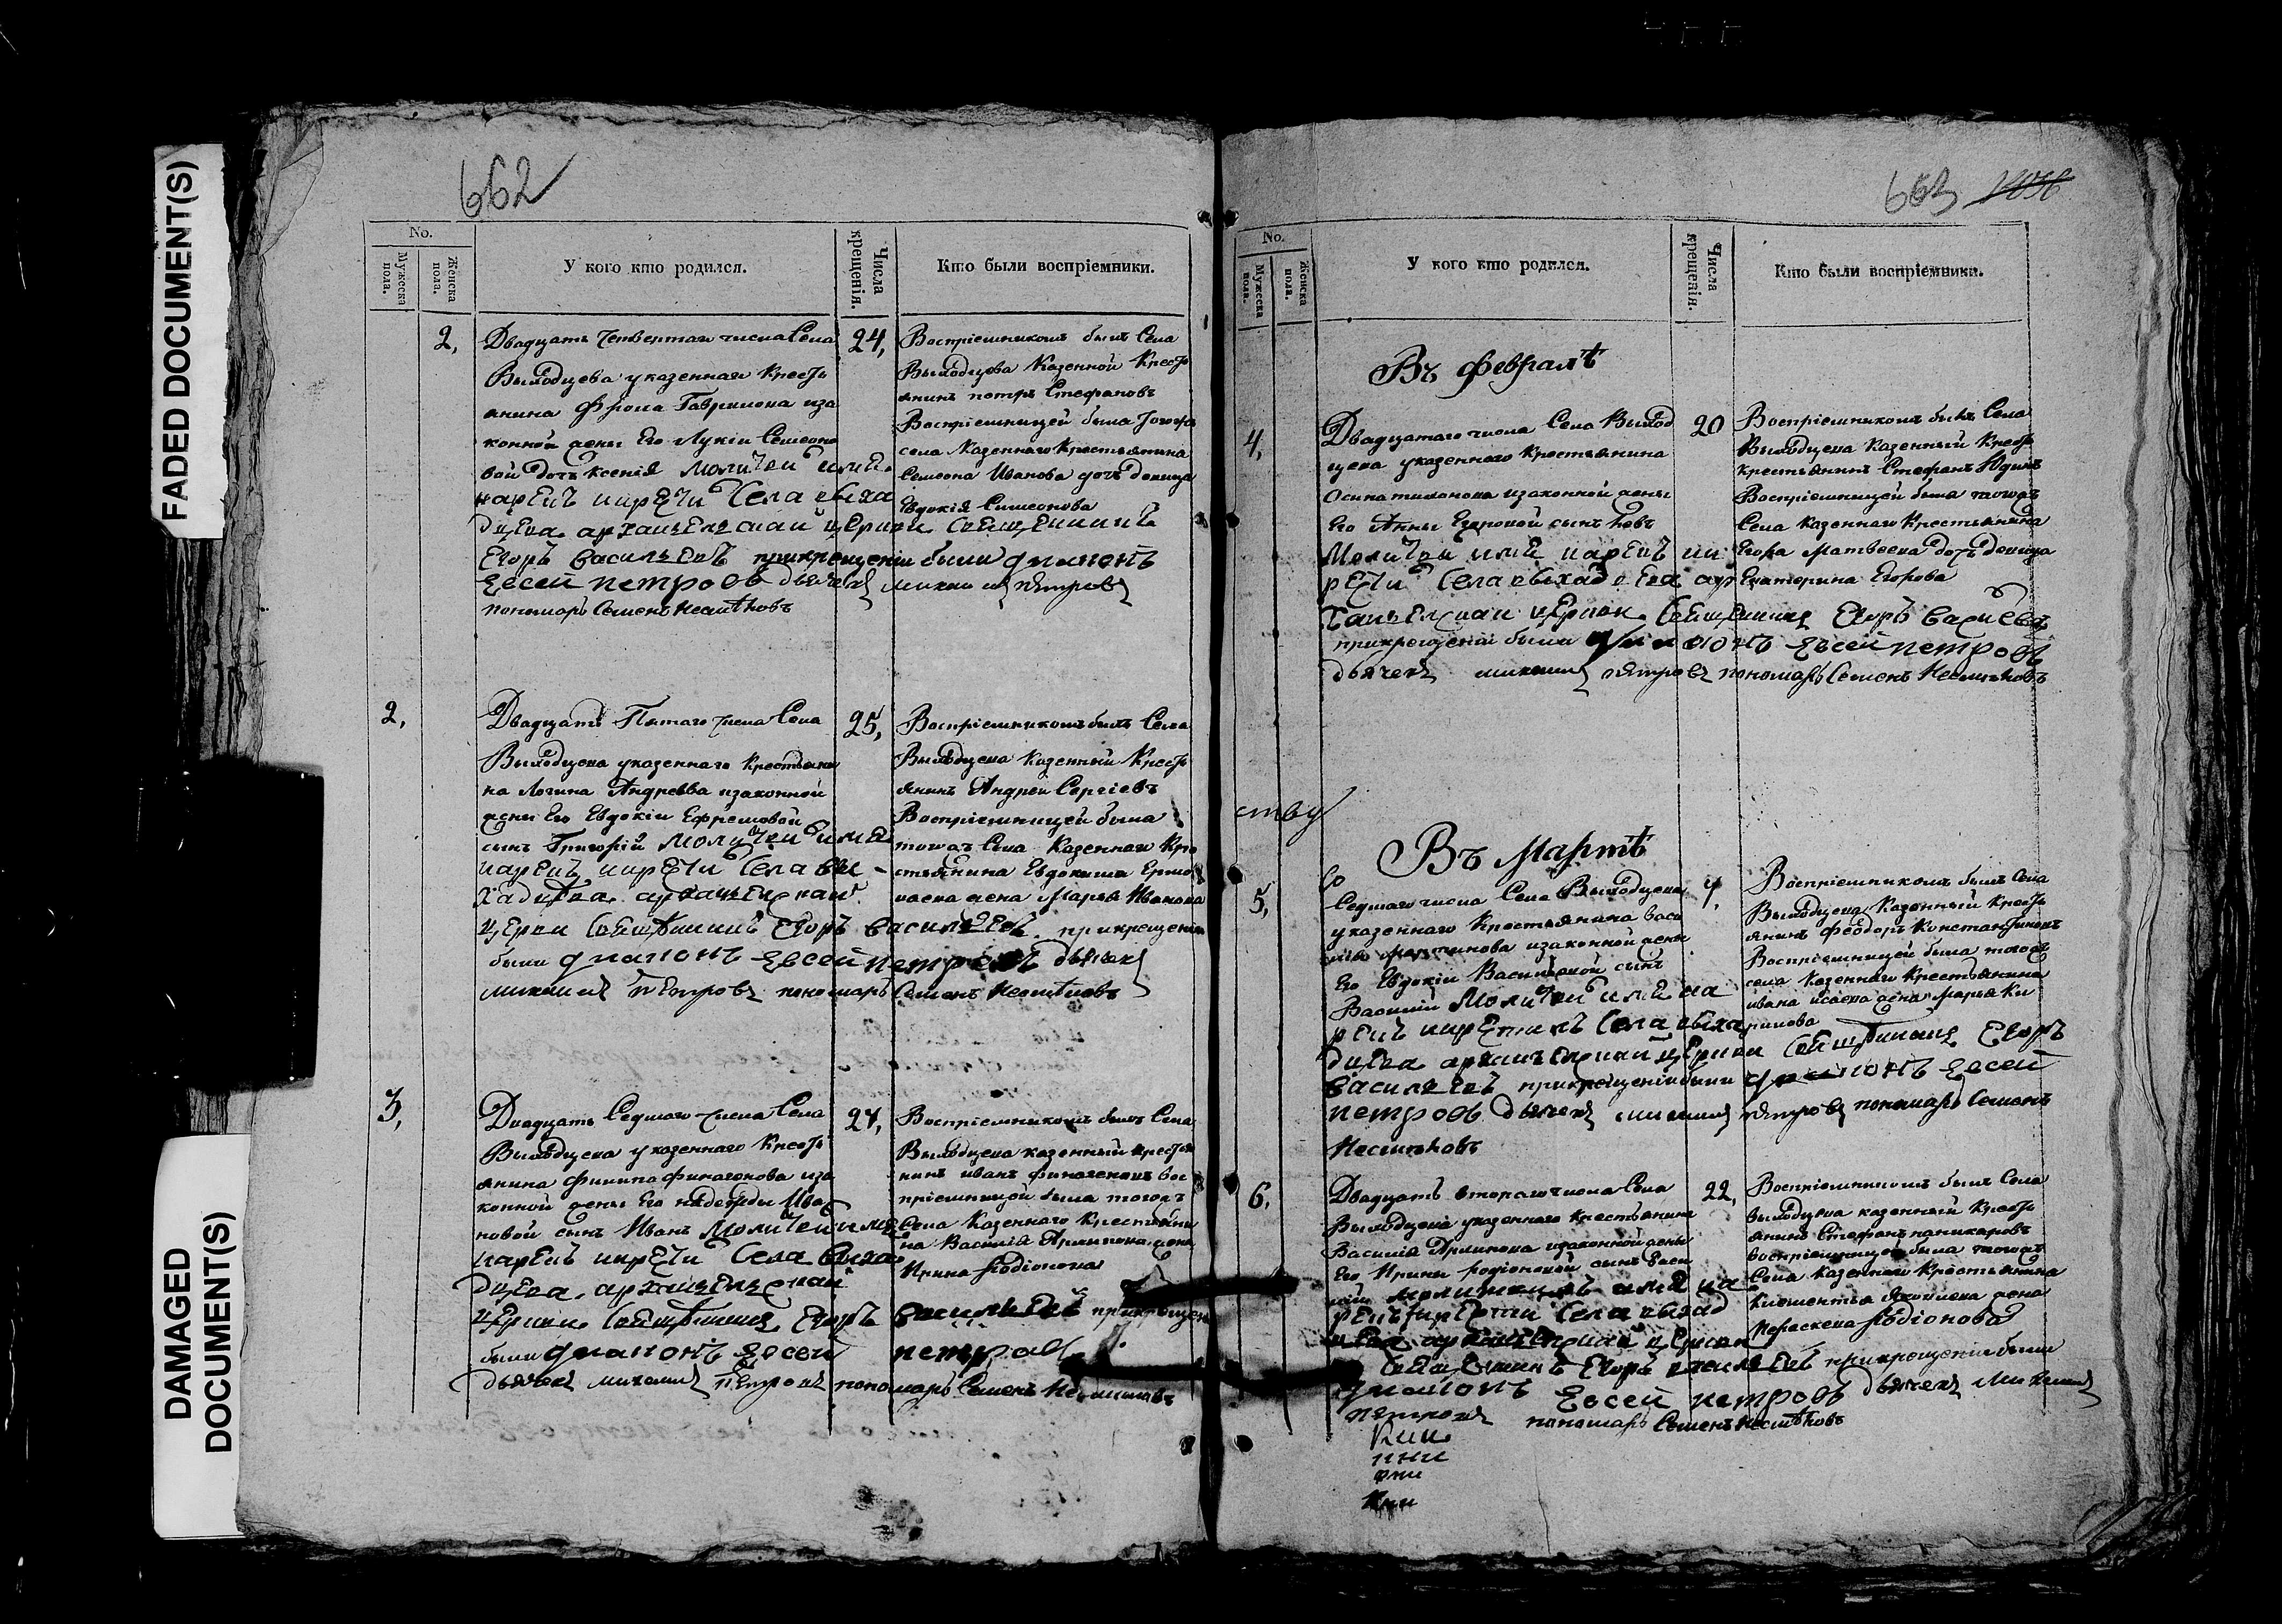 FADED DOCUMENT(S)
DAMAGED
DOCUMENT(S)
662
No.
Мужеска пола.
Женска пола.
У кого кто родился.
Числа крещенія.
Кто были воспріемники.
2,
Двадцать четвертаго числа Села
Выходцева указеннаго Кресть
янина Фрола Гаврилова иза
конной жены Его Лукіи Семено
вой дочь Ксенія молитвой имя
наречь нарече Села выха
дцева архангелскай церкви свещенникъ
Егоръ Васильевъ прикрещеніи были дияконъ
Евсей петровъ дьячекъ михаилъ петровъ
пономарь Семенъ Несмѣховъ
24,
Воспріемникомъ былъ Села
Выходцева Казенной Кресть
янинъ петръ Стефановъ
Воспріемницей была тогожъ
села Казеннаго Крестьянина
Семеона Иванова дочь девица
Евдокія Симеонова
2,
Двадцать Пятаго числа Села
Выходцева указеннаго Крестьяни
на Логина Андреева изаконной
жены Его Евдокіи Ефремовой
сынъ Григорій молитвой имя
наречь нарече Села вы-
хадцева архангелскай
церкви свещенникъ Егоръ Васильевъ прикрещеніи
были дияконъ Евсей петровъ дьячекъ
михаилъ петровъ пономарь Семенъ Несмѣховъ
25,
Воспріемникомъ былъ Села
Выходцева Казенный Кресть
янинъ Андрей Сергіевъ
Воспріемницей была
тогожъ Села Казеннаго Кре
стьянина Евдокима Ермо
лаева жена Марья Иванова
3,
Двадцать Седмаго числа Села
Выходцева указеннаго Кресть
янина Филипа Финогенова иза
конной жены Его надежды Ива
новой сынъ Иванъ молитвой имя
наречь нарече Села выха
дцева архангелскай
церкви свещенникъ Егоръ Васильевъ прикрещеніи
были дияконъ Евсей петровъ
дьячекъ михаилъ петровъ пономарь Семенъ Несмѣховъ
27,
Воспріемникомъ былъ Села
Выходцева казенный крестья
нинъ иванъ финогеновъ вос
пріемницей была тогожъ
Села Казеннаго Крестьяни
на Василія Архипова жена
Ирина Родіонова
663
No.
Мужеска пола.
Женска пола.
У кого кто родился.
Числа крещенія.
Кто были воспріемники.
Въ февралѣ
4,
Двадцатаго числа Села Выход
цева указеннаго Крестьянина
изаконной жены
Его Анны Егоровой сынъ
молитвой имя наречь на
рече Села выхадцева ар
хангелскай церкви свещенникъ Егоръ Васильевъ
прикрещеніи были дияконъ Евсей петровъ
дьячекъ михаилъ петровъ пономарь Семенъ Несмѣховъ
20
Воспріемникомъ былъ Села
Выходцева Казенный Кресть
крестьянинъ Стефанъ Юдинъ
Воспріемницей была тогожъ
Села Казеннаго Крестьянина
Егора Матвеева дочь девица
Екатерина Егорова
ству
Въ Мартѣ
5,
Седмаго числа Села Выходцева
указеннаго Крестьянина Васи
изаконной жены
Его Евдокіи Васильевой сынъ
Василий молитвой имя на
речь Села выха
дцева архангелскай церкви свещенникъ Егоръ
Васильевъ прикрещеніи были дияконъ Евсей
петровъ дьячекъ михаилъ петровъ пономарь Семенъ
Несмѣховъ
7,
Воспріемникомъ былъ Села
Выходцева Казенный Кресть
янинъ Феодоръ Константиновъ
Воспріемницей была тогожъ
села Казеннаго Крестьянина
ивана исаева жена Марья Ки
рилова
6,
Двадцать втораго числа Села
Выходцева указеннаго крестьянина
Василія Архипова изаконной жены
Его Ирины родіоновой сынъ Васи
лій молитвой имя на
речь Села выхад
цева архангелскай церкви
свещенникъ Егоръ Васильевъ прикрещеніи были
дияконъ Евсей петровъ дьячекъ Михаилъ
петровъ пономарь Семенъ Несмѣховъ
22,
Воспріемникомъ былъ Села
выходцева казенный Кресть
янинъ Стефанъ
воспріемницей была тогожъ
Села Казеннаго Крестьянина
жена
Параскева Родіонова